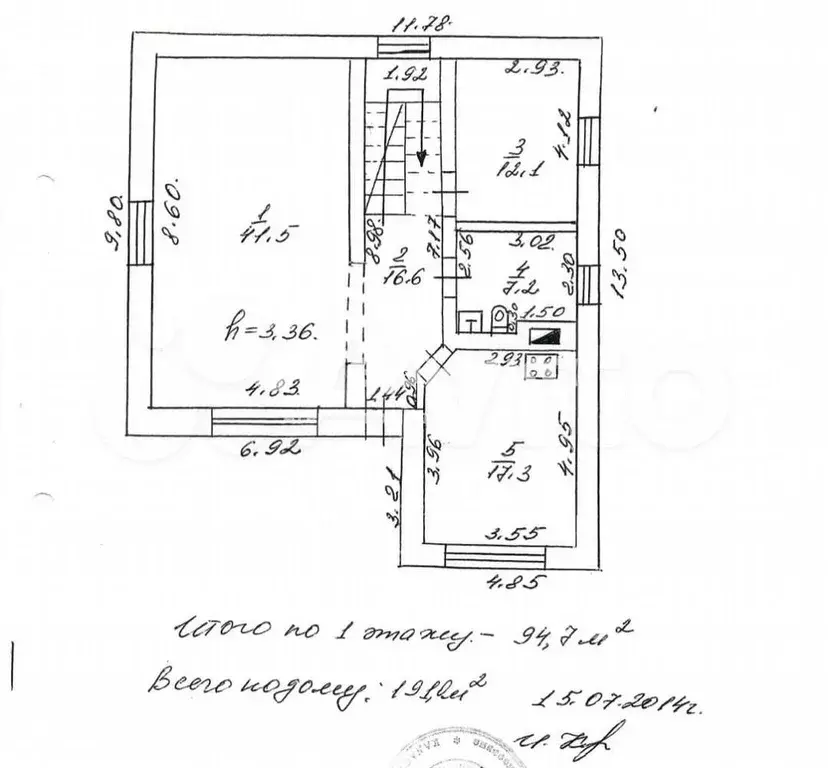 11.78.
1.92
2.93.
4.12
3
12.1
9.80.
8.60.
1
41.5
8.98.
7.17
2
16.6
2.56
3.02.
4
7.2
2.30
13.50
0.30
1.50
h=3.36.
2.93
4.83.
1.44
0.96
6.92
3.96
5
17.3
4.95
3.21
3.55
4.85
Итого по 1 этажу.- 94,7 м²
Всего по дому: 191,0 м²
15.07.2014г.